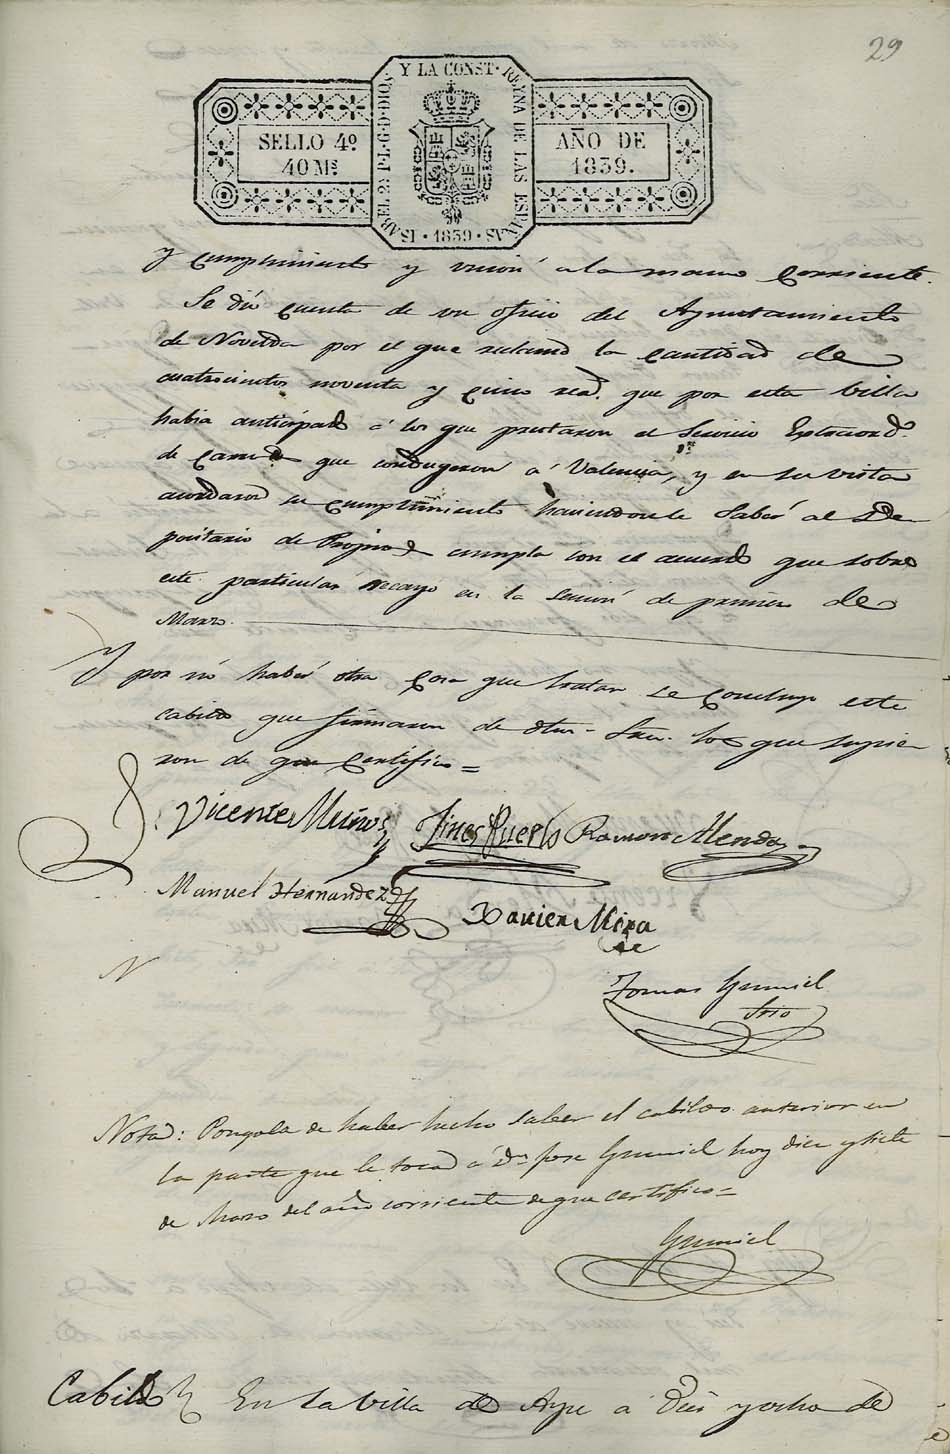 29
SELLO 4º
40 Ms
ISABEL 2ª P.L.G.D.DIOS Y LA CONST. REYNA DE LAS ESPAÑAS
· 1839 ·
AÑO DE
1839.
y cumplimiento y union a la mano corriente.
Se dió cuenta de un oficio del Ayuntamiento
de Novelda por el que reclama la cantidad de
cuatrocientos noventa y cinco read. que por esta Villa
habia anticipado á los que prestaron el Servicio Extraord.º
de que condugeron á Valencia, y en su vista
acordaron su cumplimiento haciendosele Saber al De
positario de Propios cumpla con el acuerdo que sobre
este particular recayo en la Sesion de primero de
Marzo.
Y por nó haber otra Cosa que tratar se Concluyo este
cabildo que firmaron de los que supie
ron de que Certifico =
Vicente Muños Jines Puerto Ramon Mendo
Manuel Hernandez
Xavier Mira
N
Tomas Grumiel
Srio
Nota: Pongola de haber hecho saber el cabildo anterior en
la parte que le toca á Dn Jose Grumiel hoy diez y siete
de Marzo del año corriente de que certifico =
Grumiel
Cabildo En la Villa de Aspe á Diez y ocho de